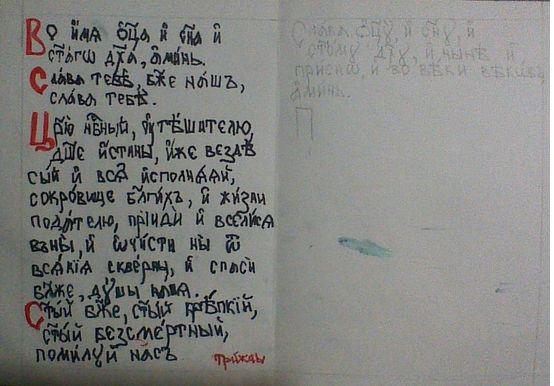 Во и҆мѧ ѻ҆ц҃а и҆ сн҃а и҆
ст҃агѡ дх҃а, а҆минь.
Слава тебѣ, бж҃е нашъ,
слава тебѣ.
Цр҃ю нб҃ный, ᲂу҆тѣшителю,
дш҃е и҆стины, и҆же вездѣ
сый и҆ всѧ и҆сполнѧѧй,
сокровище бл҃гихъ, и҆ жизни
подателю, прїиди и҆ вселисѧ
въ ны, и҆ ѡ҆чисти ны ѿ
всѧкїѧ скверны, и҆ спаси
бл҃же, дꙋшы нашѧ.
Ст҃ый бж҃е, ст҃ый крѣпкїй,
ст҃ый безсмертный,
помилꙋй насъ
трижды
Слава ѻ҆ц҃ꙋ, и҆ сн҃ꙋ, и҆
ст҃омꙋ дх҃ꙋ, и҆ нынѣ и҆
приснѡ, и҆ во вѣки вѣкѡвъ,
а҆минь.
П